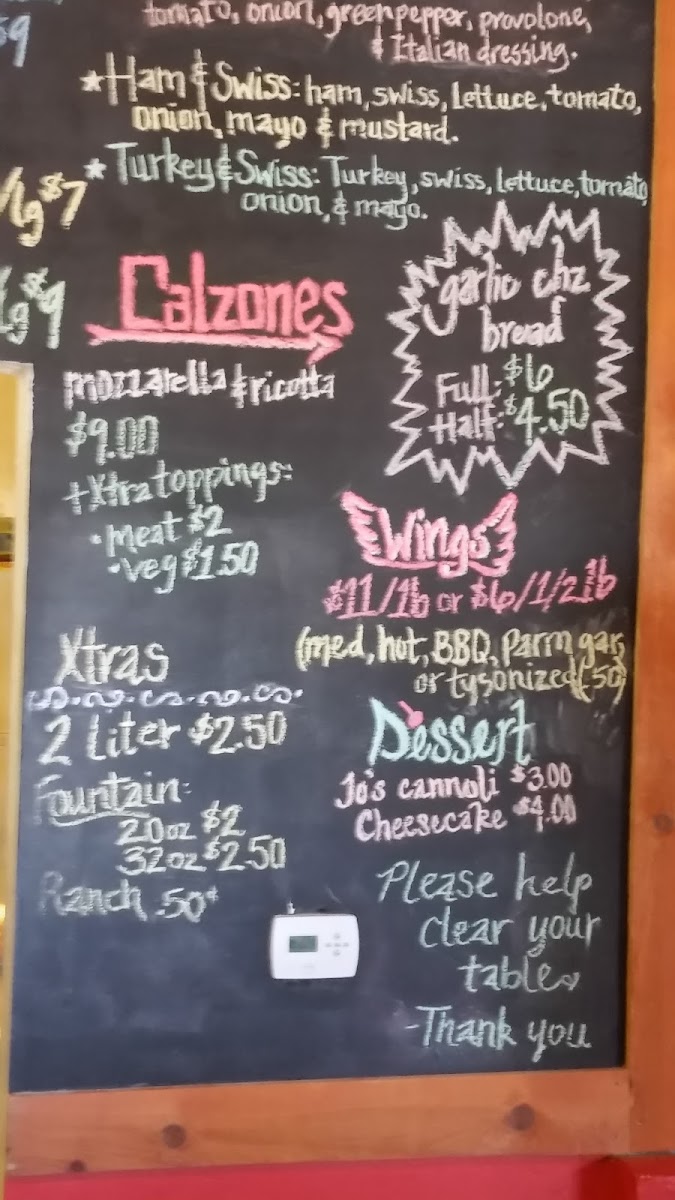 tomato, onion, green pepper, provolone,
& Italian dressing.
$9
★ Ham & Swiss: ham, swiss, lettuce, tomato,
onion, mayo & mustard.
★ Turkey & Swiss: Turkey, swiss, lettuce, tomato,
onion, & mayo.
lg $7
lg $9
Calzones
mozzarella & ricotta
$9.00
+ Xtra toppings:
• meat $2
• veg $1.50
garlic chz
bread
Full: $6
Half: $4.50
Wings
$11/lb or $6/1/2 lb
(med, hot, BBQ, Parm gar,
or tysonized(.50)
Xtras
2 Liter $2.50
Fountain:
20oz $2
32oz $2.50
Ranch .50¢
Dessert
Jo's cannoli $3.00
Cheesecake $4.00
Please help
clear your
table
-Thank you